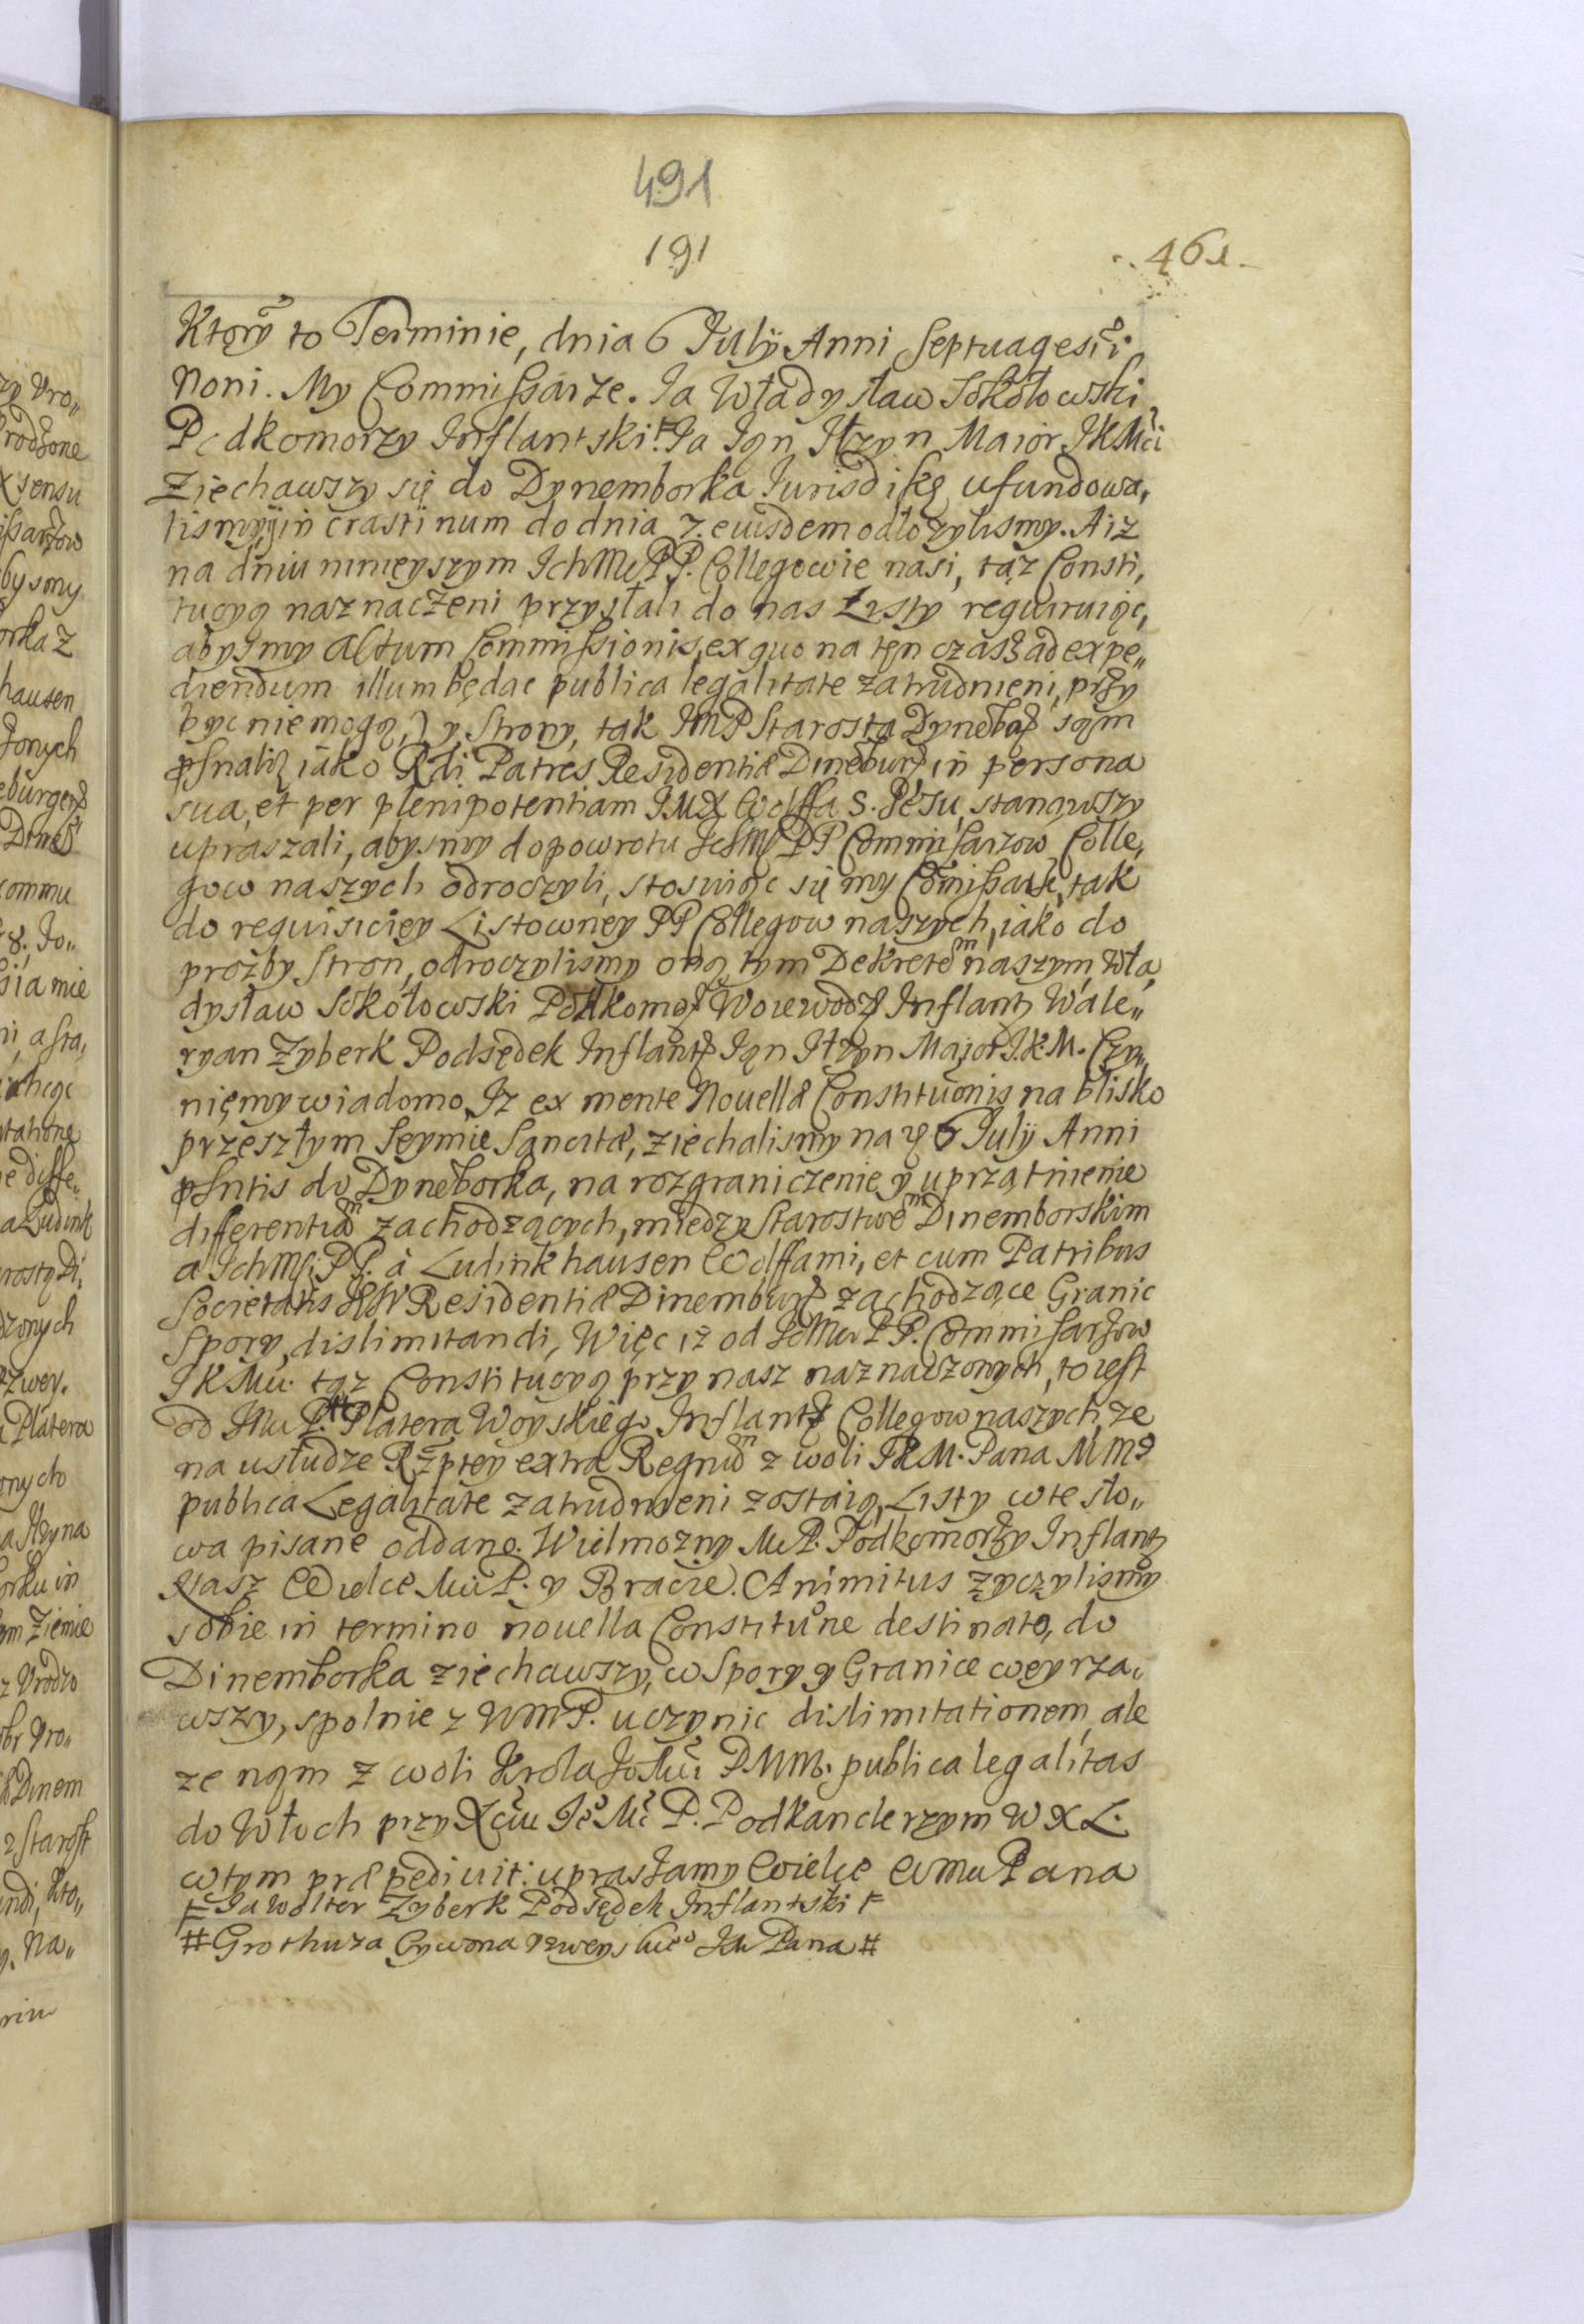 491
191
461.
Ktorỹ to Terminie, dnia 6 Julÿ Anni Septuagesĩi
Noni. My Commißarze. Ja Władysław Sokołowski
Podkomorzy Inflantski. Ja Jan Itzyn Maior JKMci
Ziechawszy się do Dynemborka Jurisdikę ufundowa,
lismy, y in crastinum do dnia 7. euisdem odłozylismy. A iz
na dniu ninieyszym IchMci PP. Collegowie nasi, tąz Consti,
tucyą naznaczeni przysłali do nas Listy requiruiąc,
abysmy Actum Commißionis, ex quo na ten czas ad expe„
diendum illum będąc publica legalitate zatrudnieni, przy
byc nie mogą, y Strony, tak JMP Starosta Dyneb sam
psnalir iako Rdi Patres Residentiæ Dineburg in persona
sua, et per plenipotentiam JMX Wolffa S. Jesu, stanąwszy
upraszali, abysmy do powrotu IchMc PP Commissarzow Colle,
gow naszych odroczyli, stosuiąc się my Comißarze, tak
do requisiciey Listowney PP Collegow naszych, iako do
prozby Stron, odroczylismy oną tym Dekretem naszym, Wła,
dysław Sokołowski Podkomorz Woiewodz Inflant Wale„
ryan Zyberk Podsędek Inflant Jan Itzyn Major J.K.M. Czy„
nięmy wiadomo, Iz ex mente Nouellæ Constituonis na blisko
przeszłym Seymie Sancitæ, ziechalismy na 6 Julÿ Anni
psntis do Dyneborka, na rozgraniczenie y uprzątnienie
differentium zachodzących, miedzy Starostwem Dinemborskim
a IchMsc. PP. à Ludinkhausen Wolffami, et cum Patribus
Societatis Residentiæ Dinemburg zachodzące Granic
Spory, dislimitandi, Więc iz od IcMci PP. Commissarzow
JKMci. tąz Constitucyą przy nasz naznaczonych, to iest
od JMci P. # Platera Woyskiego Inflant Collegow naszych, ze
na usłudze Rzptey extra Regnum z woli JKM. Pana MM
publica Legalitate zatrudnieni zostaią, Listy w te sło„
wa pisane oddano. Wielmozny Mci P. Podkomorzy Inflant
Nasz Wielce Mci P. y Bracie. Animitus zyczylismy
sobie in termino nouella Constitune destinato, do
Dinemborka ziechawszy, w Spory y Granice weyrza„
wszy, spolnie z WMP. uczynic dislimitationem, ale
ze nąm z woli Krola JoMci P.MM. publica legalitas
do Włoch przy Xciu Je Mci P. Podkanclerzym W X L.
w tym præpediuit: upraszamy Wielce WMci Pana
F Ja Wolter Zyberk Podsędek Inflantski F
# Grothuza Cywona JMci Pana #